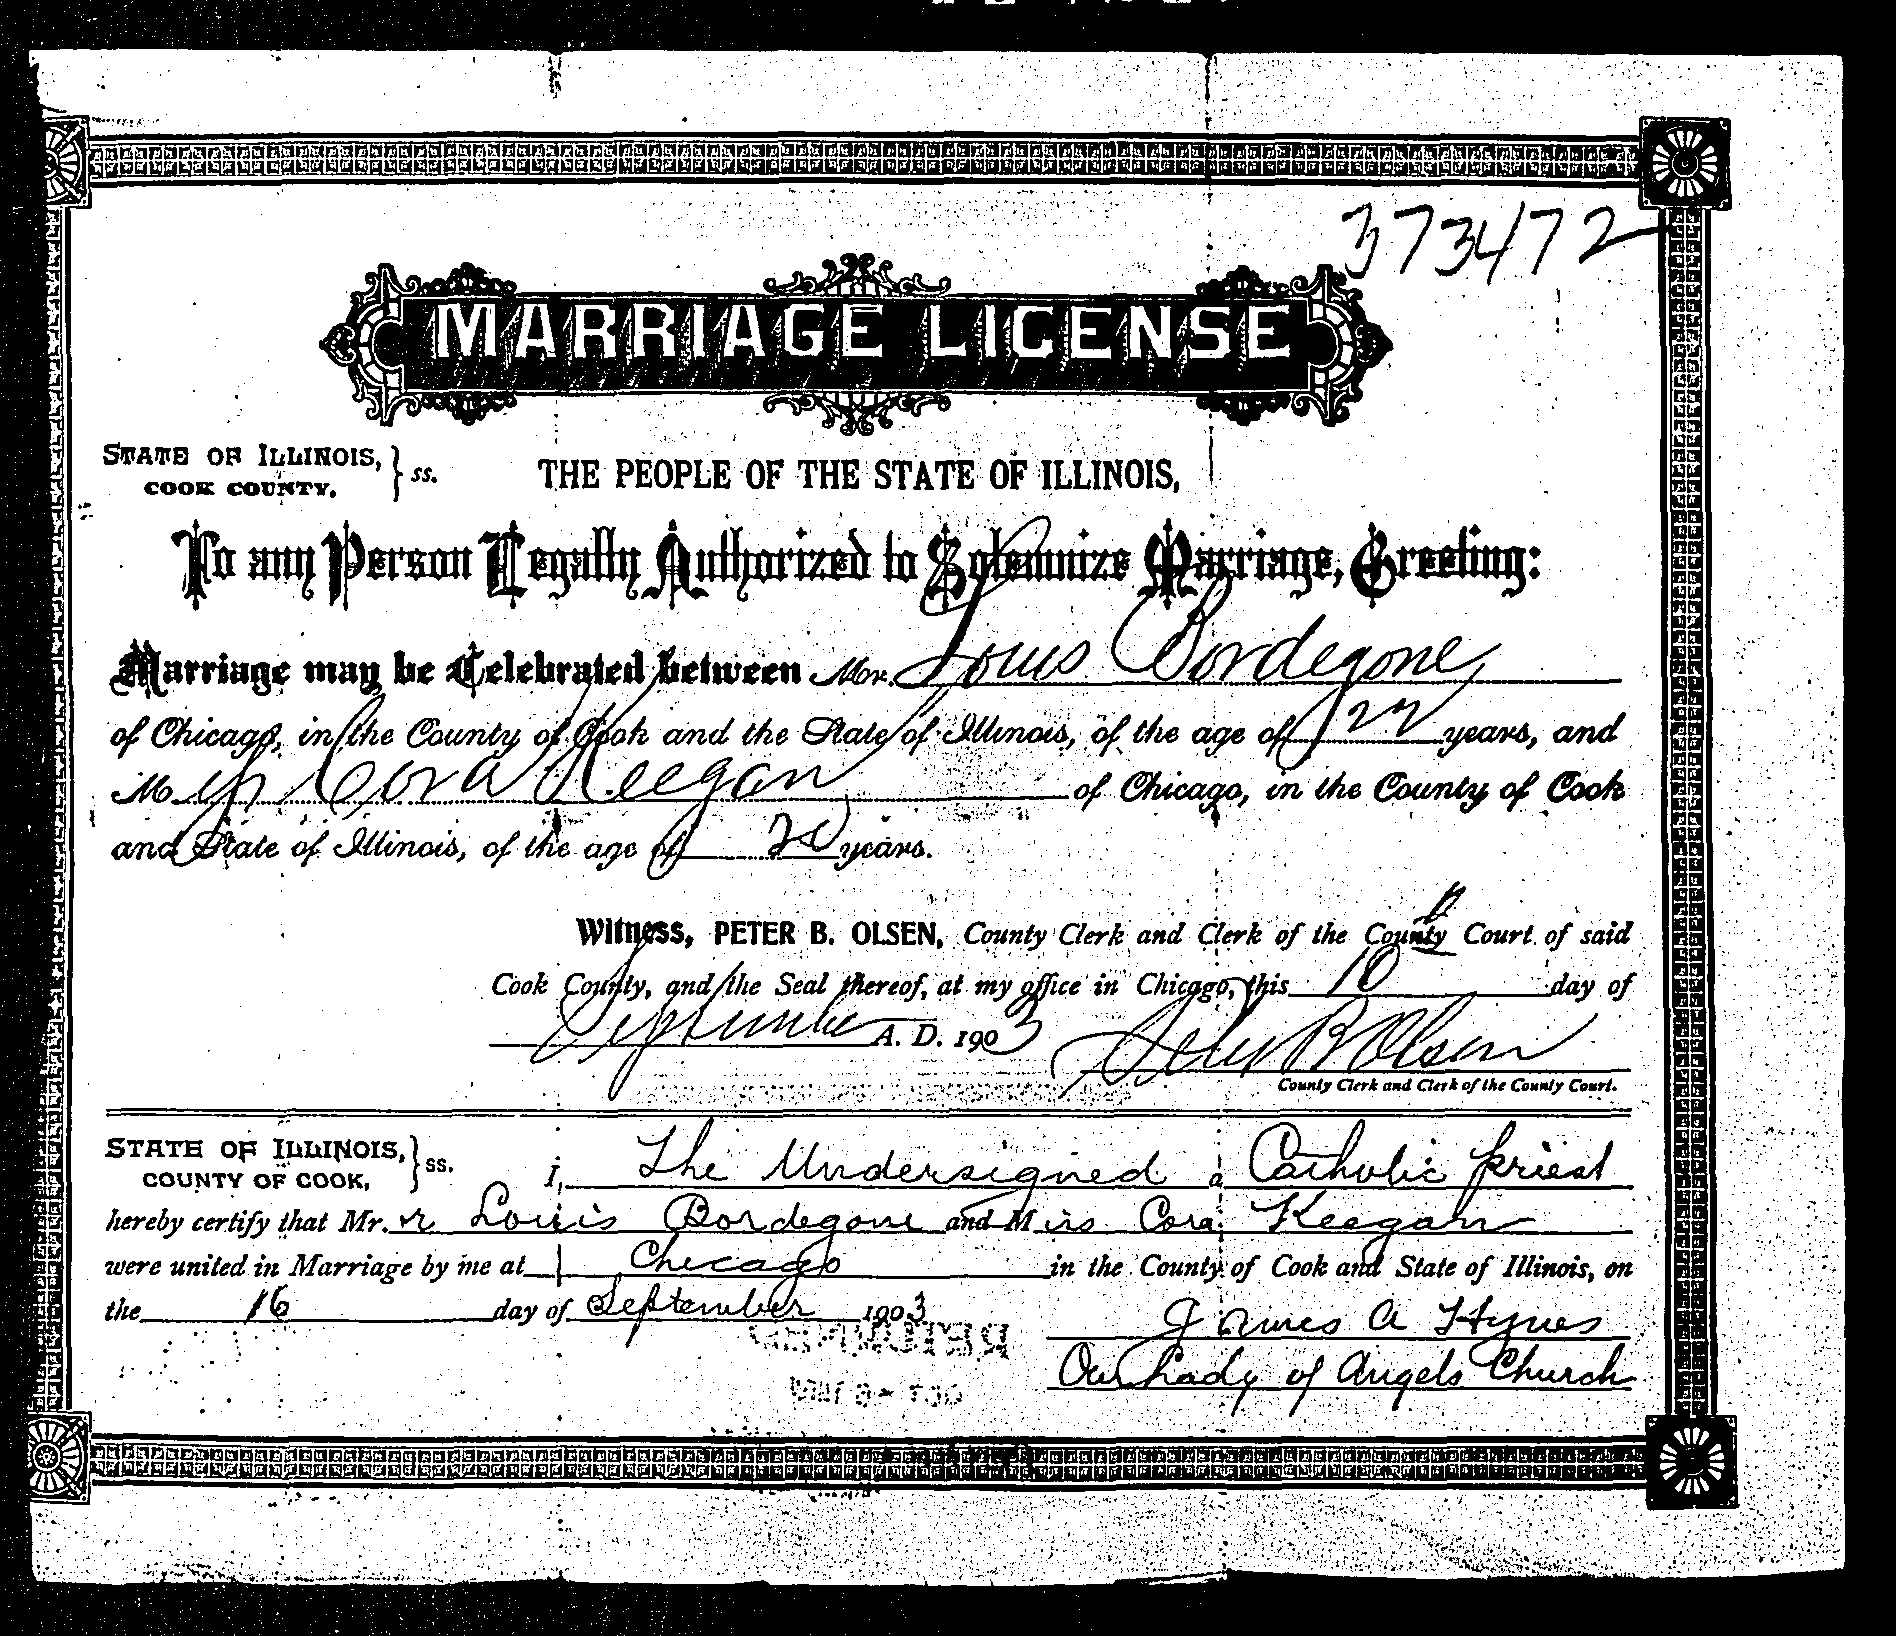 373472
MARRIAGE LICENSE
STATE OF ILLINOIS, COOK COUNTY. } ss.
THE PEOPLE OF THE STATE OF ILLINOIS,
To any Person Legally Authorized to Solemnize Marriage, Greeting:
Marriage may be Celebrated between Mr. Louis Bordegone
of Chicago, in the County of Cook and the State of Illinois, of the age of 22 years, and
M Cora Keegan of Chicago, in the County of Cook
and State of Illinois, of the age of 20 years.
Witness, PETER B. OLSEN, County Clerk and Clerk of the County Court of said
Cook County, and the Seal thereof, at my office in Chicago, this 10 day of
September A. D. 1903 Peter B Olsen
County Clerk and Clerk of the County Court.
STATE OF ILLINOIS, COUNTY OF COOK, } ss.
I, The Undersigned a Catholic priest
hereby certify that Mr. r Louis Bordegone and Miss Cora Keegan
were united in Marriage by me at Chicago in the County of Cook and State of Illinois, on
the 16 day of September 1903
James A Hynes
Our Lady of Angels Church